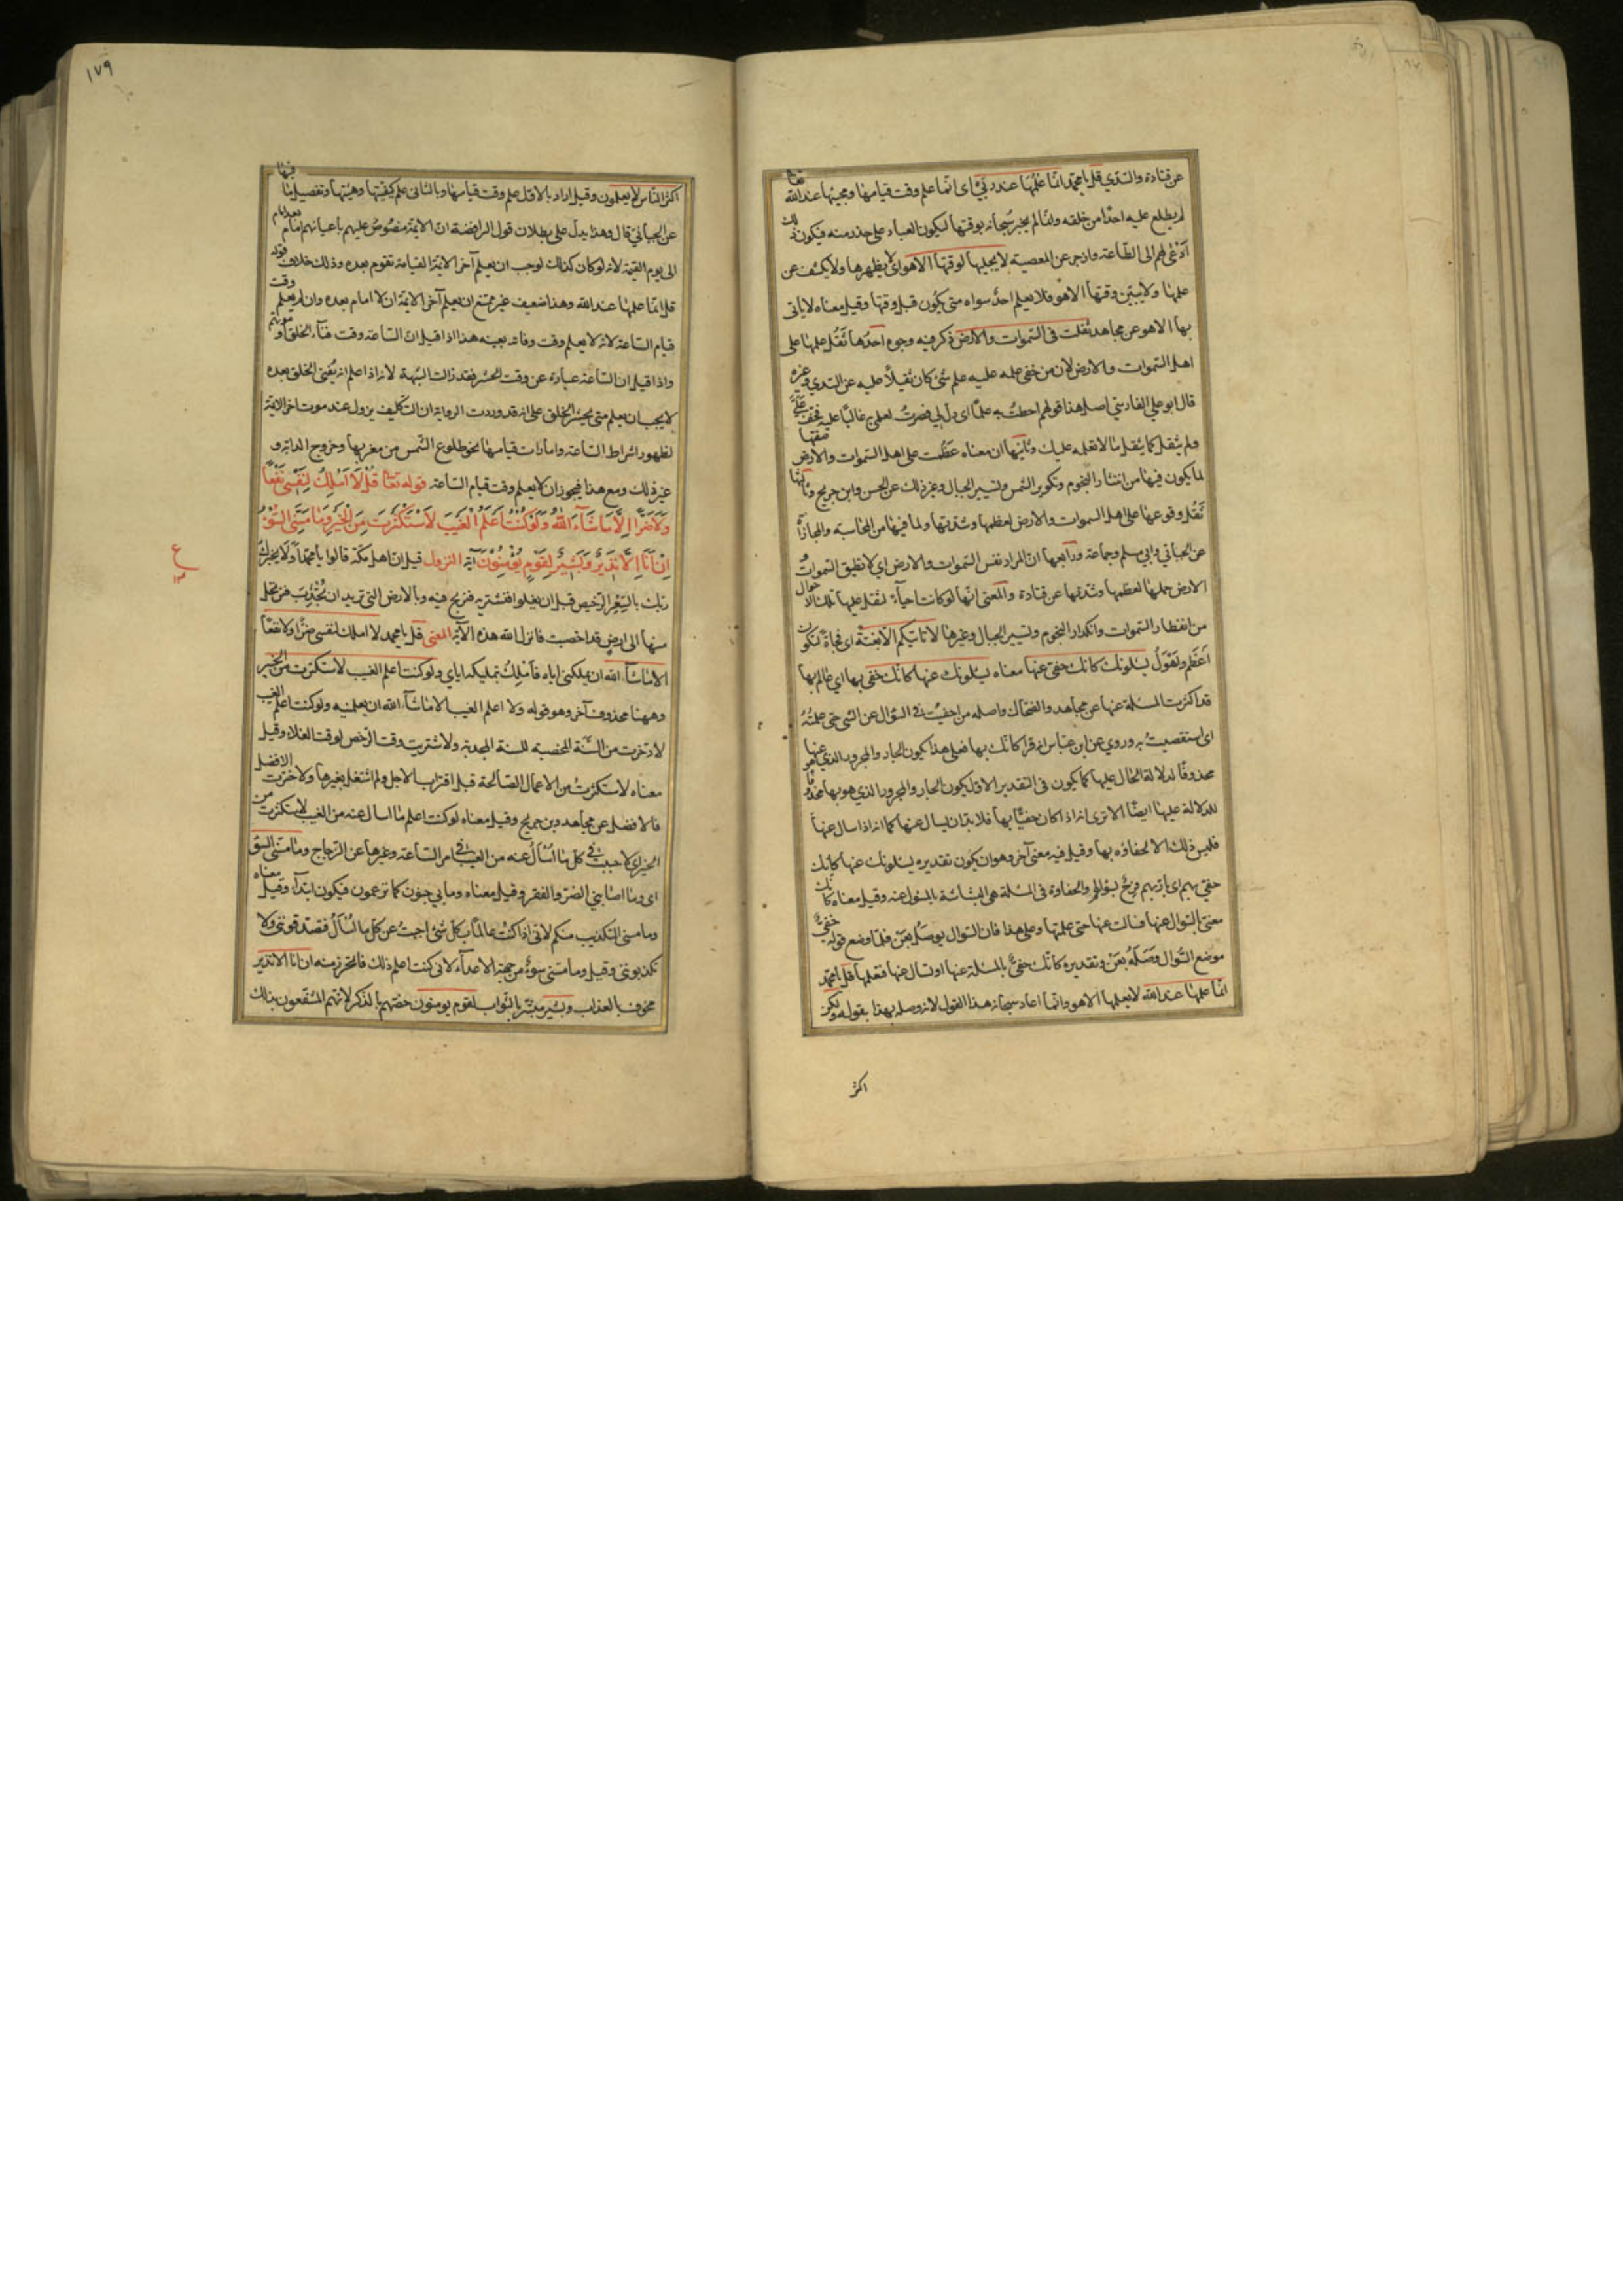 عن قتادة والسّدي قل يا محمّد انّما علمها عند ربّي اى انّما علم وقت قيامها ومجيئها عند الله تعالى
لم يطلع عليه احدًا من خلقه وانّما لم يخبر سُبحانه بوقتها ليكون العباد على حذر منه فيكون ذلك
اَدْعٰى لهم الى الطّاعة وازجر عن المعصية لا يجليها لوقتها الا هو اى لا يظهرها ولا يكشف عن
علمها ولا يبيّن وقتها الا هو فلا يعلم احدٌ سواه متى يكون قبل وقتها وقيل معناه لا ياتى
بها الا هو عن مجاهد ثقلت فى السّموات والارض ذكر فيه وجوه احدُها ثَقُل علمها على
اهل السّموات والارض لان من خفى عليه علم شئ كان ثقيلاً عليه عن السّدي وغيره
قال ابو علي الفارسي اصل هذا قولهم احطتُ به علمًا اى ذلّ لي فصرتُ لعلمي به غالبًا عليه فخفّ عَلَيَّ
ولم يثقل كما يثقل ما لا تعلمه عليك وثانيها ان معناه عَظُمت على اهل السّموات والارض صفتها
لما يكون فيها من انتثار النّجوم وتكوير الشّمس وتسيير الجبال وغير ذلك عن الحسن وابن جريج وثالثها
ثَقُل وقوعها على اهل السموات والارض لعظمها وشدّتها ولما فيها من المحاسبة والمجازاة
عن الجبائي وابي مسلم وجماعة ورابعها انّ المراد نفس السّموات والارض اي لا تطيق السّمواتُ
الارض حملها لعظمها وشدّتها عن قتادة والمعنى انّها لو كانت احياءً لثقل عليها تلك الاحوال
من انفطار السّموات وانكدار النّجوم وتسيير الجبال وغيرها لا تاتيكم الاّ بغتة اى فجاةً لتكون
اَعْظَم واَهْوَلُ يسئلونك كانّك حفيّ عنها معناه يسئلونك عنها كانّك حفي بها اي عالم بها
قد اكثرت المسئلة عنها عن مجاهد والضحّاك واصله من احفيتُ فى السّؤال عن الشى حتى علمتُهُ
اى استقصيتُ به وروي عن ابن عبّاس انه قرا كانّك بها فعلى هذا يكون الجار والمجرور الذي هو عنها
محذوفًا لدلالة الحال عليها كما يكون فى التقدير الاوّل يكون الجار والمجرور الذي هو بها محذوفًا
للدلالة عليها ايضًا الا ترى انه اذا كان حفيًّا بها فلا بدّ ان يسال عنها كما انه اذا سال عنها
فليس ذلك الا لحفاوَه بها وقيل فيه معنى آخر وهو ان يكون تقديره يسئلونك عنها كانّك
حفيّ بهم اى بارّ بهم فرحٌ بسؤالهم والحفاوة فى المسئلة هى البشاشة بالمسئول عنه وقيل معناه كانّك
معنيّ بالسّوال عنها فسالت عنها حتى علمتها وعلى هذا فان السّوال يوصَلُ بعَنْ فلمّا وضع قوله حفيٌّ
موضع السُّوال وَصَلَهُ بعَنْ وتقديره كانّك حفيٌّ بالمسئلة عنها او تسال عنها فتعلمها قل يا محمّد
انّما علمها عند الله لا يعلمها الا هو وانّما اعاد سبحانه هذا القول لانه وصله بهذا بقوله ولكنّ
اكثر
١٧٩
اكثر النّاس لا يعلمون وقيل اراد بالاوّل علم وقت قيامها وبالثانى علم كيفيّتها وهيئتها وتفصيل ما فيها
عن الجبائيّ قال وهذا يدلّ على بطلان قول الرافضة انّ الائمّة منصُوصٌ عليهم باعيانهم امام بعد امام
الى يوم القيٰمة لانه لو كان كذلك لوجب ان يعلم آخر الائمّة القيامة تقوم بعده وذلك خلاف قوله
قل انّما علمها عند الله وهذا ضعيف غير ممتنع ان يعلم آخر الائمّة ان لا امام بعده وان لم يعلم وقت
قيام السّاعة لانه لا يعلم وقت وفاته بعينه هذا اذا قيل انّ السّاعة وقت فنآء الخلق او موتهم
واذا قيل ان السّاعة عبارة عن وقت الحشر فقد زالت الشبهة لانه اذا علم انه يُفنى الخلق بعده
لا يجب ان يعلم متى يحشر الخلق على انه قد وردت الرواية ان التّكليف يزول عند موت اخر الائمّة
لظهور اشراط السّاعة وامارات قيامها نحو طلوع الشّمس من مغربها وخروج الدابّة و
غير ذلك ومع هذا فيجوز ان لا يعلم وقت قيام السّاعة قوله تعالى قُلْ لَا اَمْلِكُ لِنَفْسِى نَفْعًا
وَلَا ضَرًّا اِلَّا مَا شَآءَ اللّٰهُ وَلَوْ كُنْتُ اَعْلَمُ الْغَيْبَ لَاسْتَكْثَرْتُ مِنَ الْخَيْرِ وَمَا مَسَّنِىَ السُّوٓءُ
اِنْ اَنَا اِلَّا نَذِيرٌ وَبَشِيرٌ لِقَوْمٍ يُؤْمِنُونَ آية النزول قيل انّ اهل مكّة قالوا يا محمّد اَوَلَا يخبرك
ربّك بالسّعر الرّخيص قبل ان يغلو فنشتريه فنربح فيه وبالارض التى تريد ان تُجْدِبَ فنرتحل
منها الى ارضٍ قد اخصبت فانزل الله هذه الآية المعنى قل يا محمد لا املك لنفسى ضرًّا ولا نفعًا
الا ما شآء الله ان يملكنى اياه فاَمْلِكُ بتمليكه اياي ولو كنت اعلم الغيب لاستكثرت من الخير
وههنا محذوف آخر وهو قوله ولا اعلم الغيب الا ما شآء الله ان يعلمنيه ولو كنت اعلم الغيب
لادّخرت من السّنة المخصبه للسنة المجدبة ولاشتريت وقت الرّخص لوقت الغلاء وقيل
معناه لاستكثرتُ من الاعمال الصّالحة قبل اقتراب الاجل ولم اشتغل بغيرها ولاخترت الافضل
فالافضل عن مجاهد وبن جريج وقيل معناه لو كنت اعلم ما اسال عنه من الغيب لاستكثرت من
الخير اى لاجبت فى كلّ ما اُسْاَلُ عنه من الغيب فى امر السّاعة وغيرها عن الزّجاج وما مسّنى السّوء
اى وما اصابني الضرّ والفقر وقيل معناه وما بي جنون كما تزعمون فيكون ابتدآءً وقيل معناه
وما مسنى التكذيب منكم لانّى اذا كنتُ عالمًا بكلّ شئ اجبتُ عن كلّ ما اُسْاَلُ فتصدّقوننى ولا
تكذبوننى وقيل وما مسّنى سوءٌ من جهة الاعدآء لانى كنت اعلم ذلك فاتحرّز منه ان انا الا نذير
مخوف بالعذاب وبشير مبشّر بالثّواب لقوم يومنون خصّهم بالذّكر لانّهم المنتفعون بذلك
ع